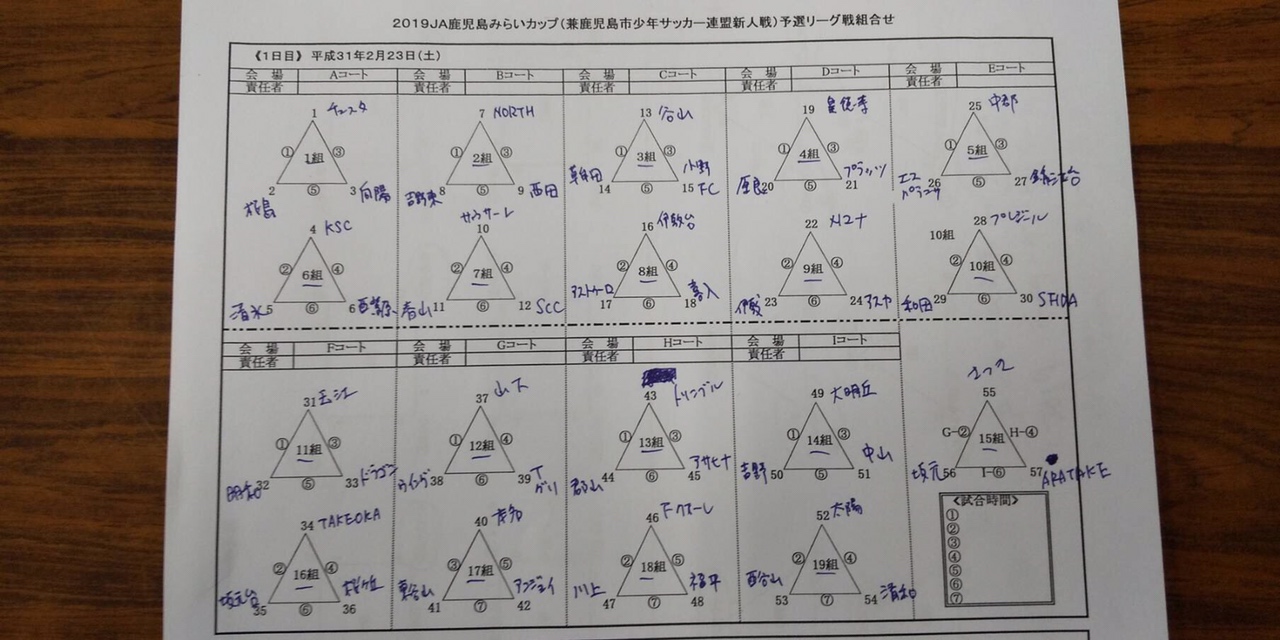 2019JA鹿児島みらいカップ（兼鹿児島市少年サッカー連盟新人戦）予選リーグ戦組合せ
《1日目》 平成31年2月23日（土）
会 場 Aコート 会 場 Bコート 会 場 Cコート 会 場 Dコート 会 場 Eコート
責任者 責任者 責任者 責任者 責任者
1 7 NORTH 13 谷山 19 皇徳寺 25 中郡
① 1組 ③ ① 2組 ③ ① 3組 ③ ① 4組 ③ ① 5組 ③
2 ⑤ 3 向陽 吉野東 8 ⑤ 9 西田 14 ⑤ 15 FC 原良 20 ⑤ 21 プラッツ エスペランサ 26 ⑤ 27 錦江台
桜島
4 KSC 10 サウサーレ 16 伊敷台 22 メロナ 28 プレジール
10組
② 6組 ④ ② 7組 ④ ② 8組 ④ ② 9組 ④ ② 10組 ④
清水 5 ⑥ 6 西紫原 春山 11 ⑥ 12 SCC アストーロ 17 ⑥ 18 喜入 伊敷 23 ⑥ 24 アスヤ 和田 29 ⑥ 30
会 場 Fコート 会 場 Gコート 会 場 Hコート 会 場 Iコート
責任者 責任者 責任者 責任者
31 玉江 37 山下 43 トリンブル 49 大明丘 55
① 11組 ③ ① 12組 ④ ① 13組 ③ ① 14組 ③ G-② 15組 H-④
明和 32 ⑤ 33 ドラゴン ウイング 38 ⑥ 39 郡山 44 ⑥ 45 アサヒナ 吉野 50 ⑤ 51 中山 坂元 56 I-⑥ 57 ARATAKE
34 TAKEOKA 40 46 52 太陽
② 16組 ④ ③ 17組 ⑤ ② 18組 ⑤ ② 19組 ④
坂元台 35 ⑥ 36 桜ヶ丘 東谷山 41 ⑦ 42 アンジェイ 川上 47 ⑦ 48 福平 西谷山 53 ⑦ 54 清和
＜試合時間＞
①
②
③
④
⑤
⑥
⑦